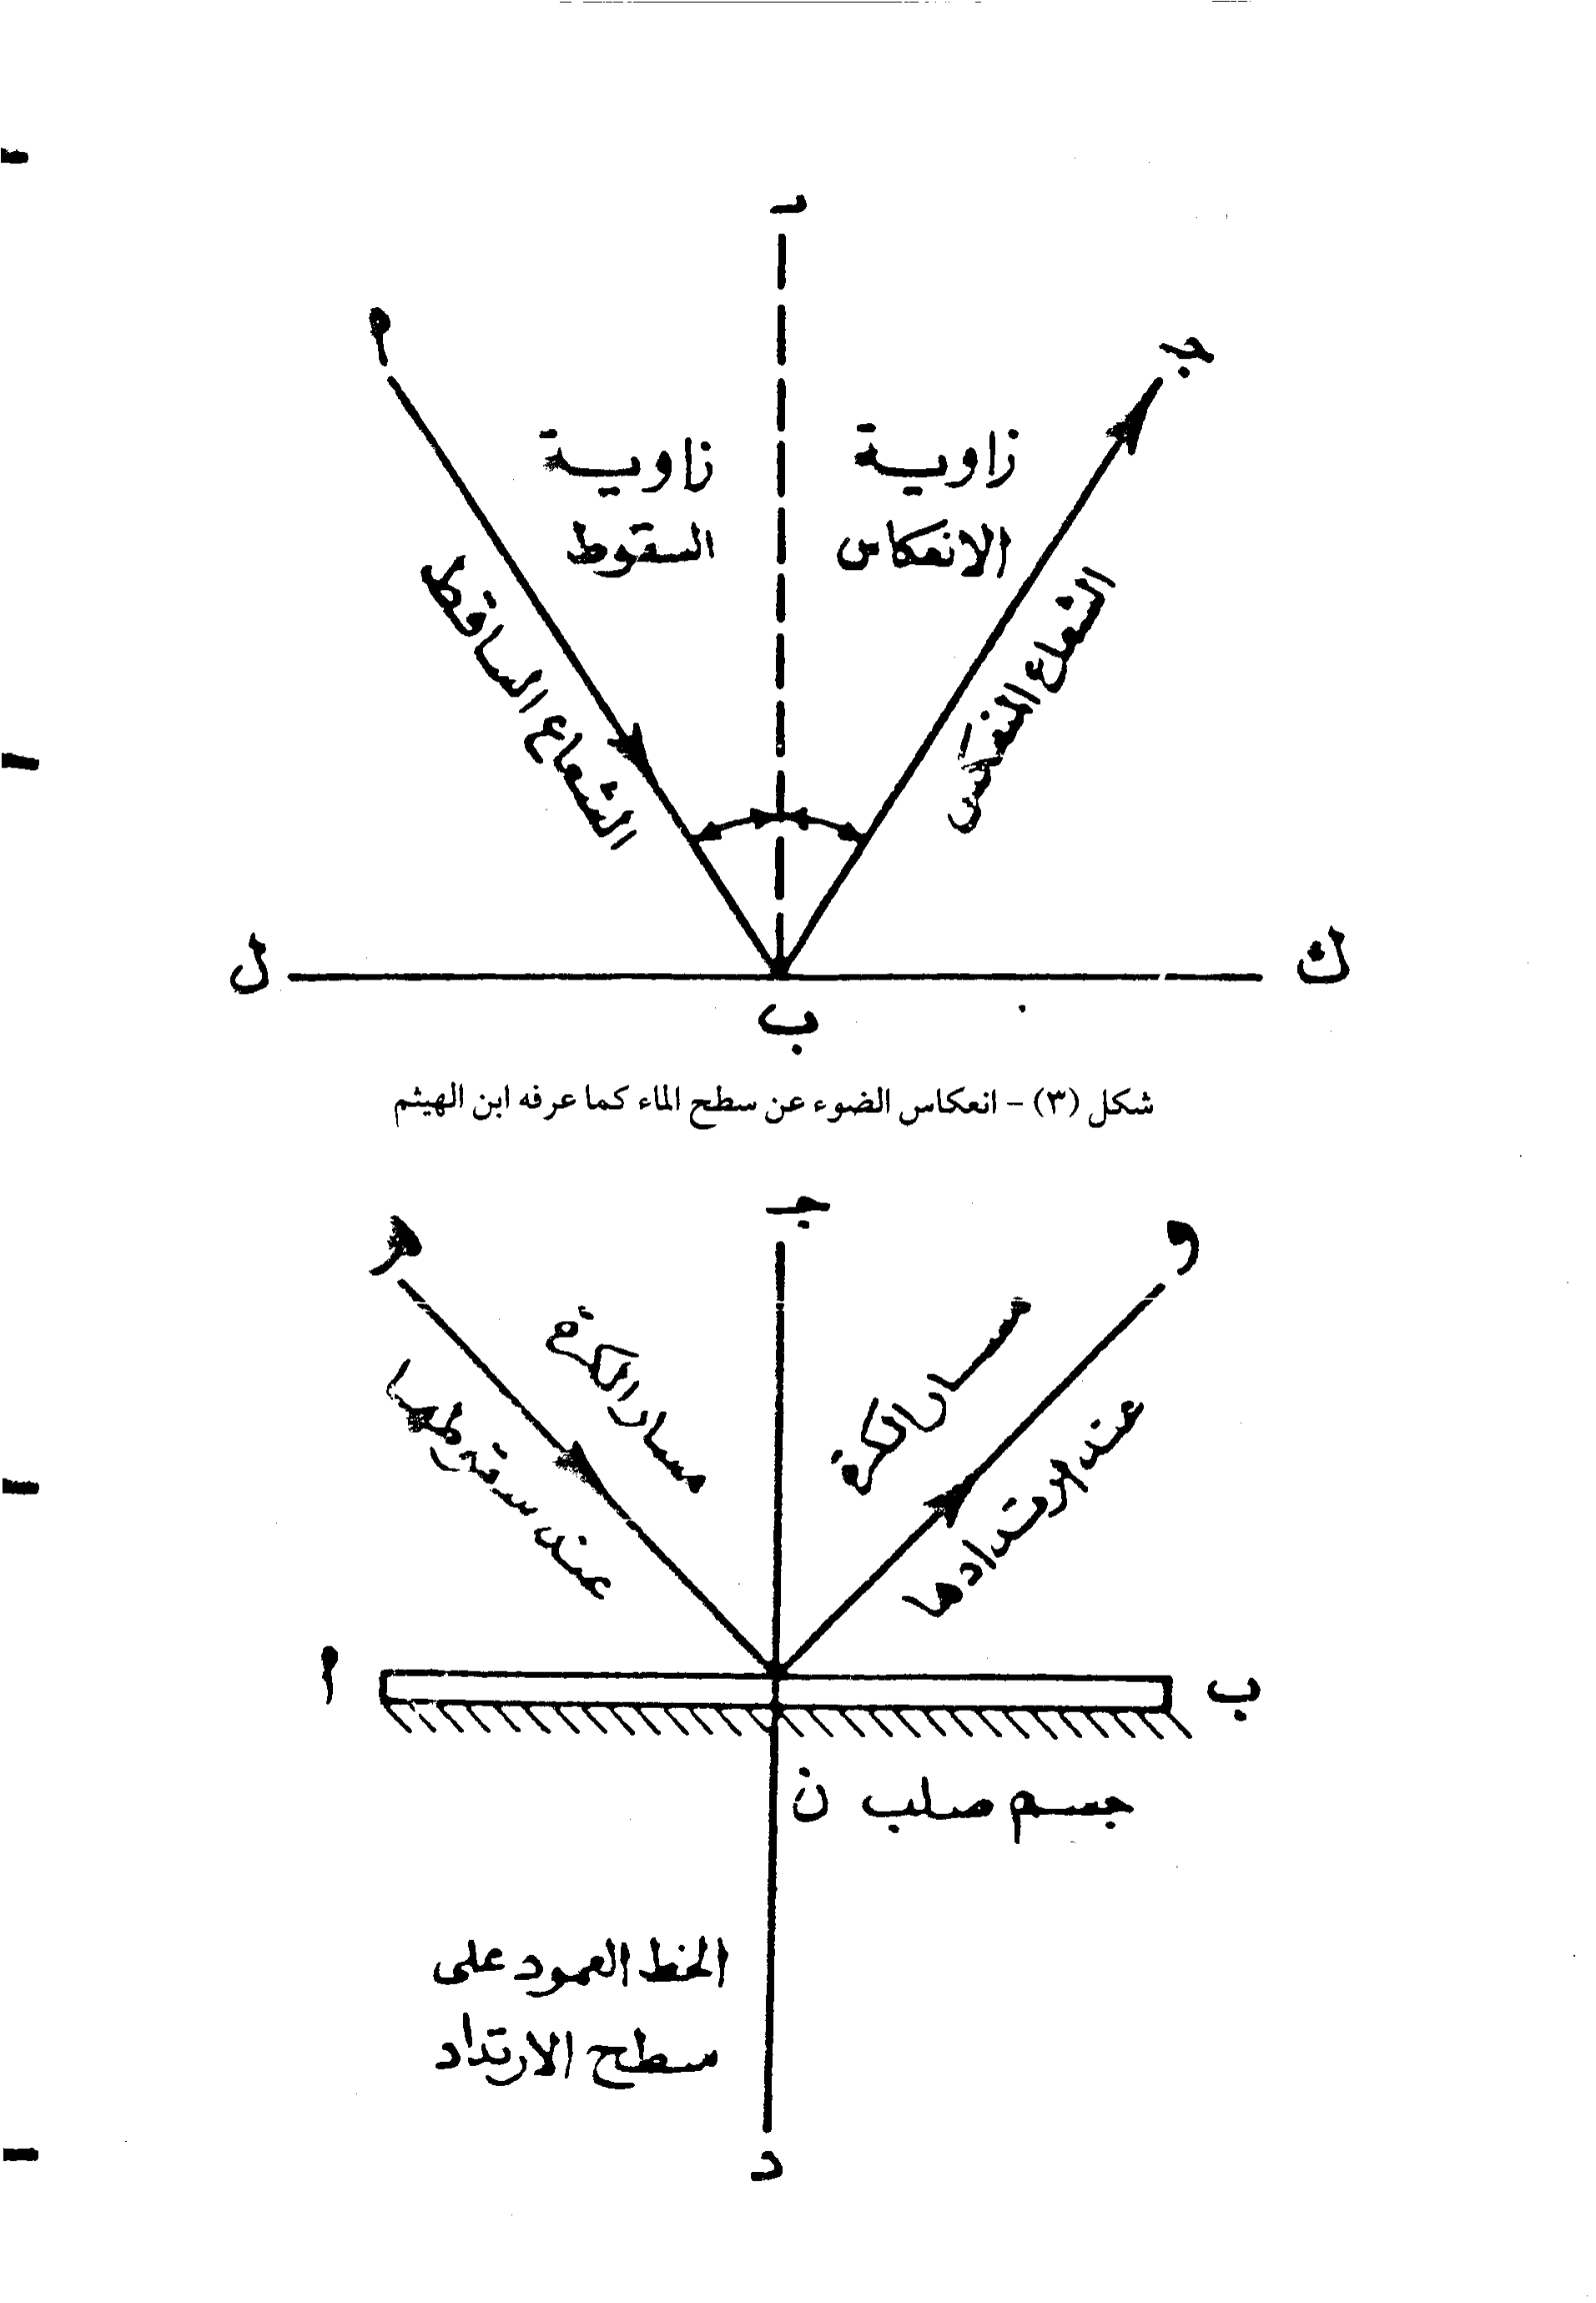 د
م
جـ
زاوية
السقوط
زاوية
الانعكاس
الشعاع الساقط
الشعاع المنعكس
ل
ك
ب
شكل (٣) – انعكاس الضوء عن سطح الماء كما عرفه ابن الهيثم
جـ
هـ
و
مسار الكرة
عند سقوطها
مسار الكرة
عند ارتدادها
م
ب
جسم صلب ن
الخط العمود على
سطح الارتداد
د